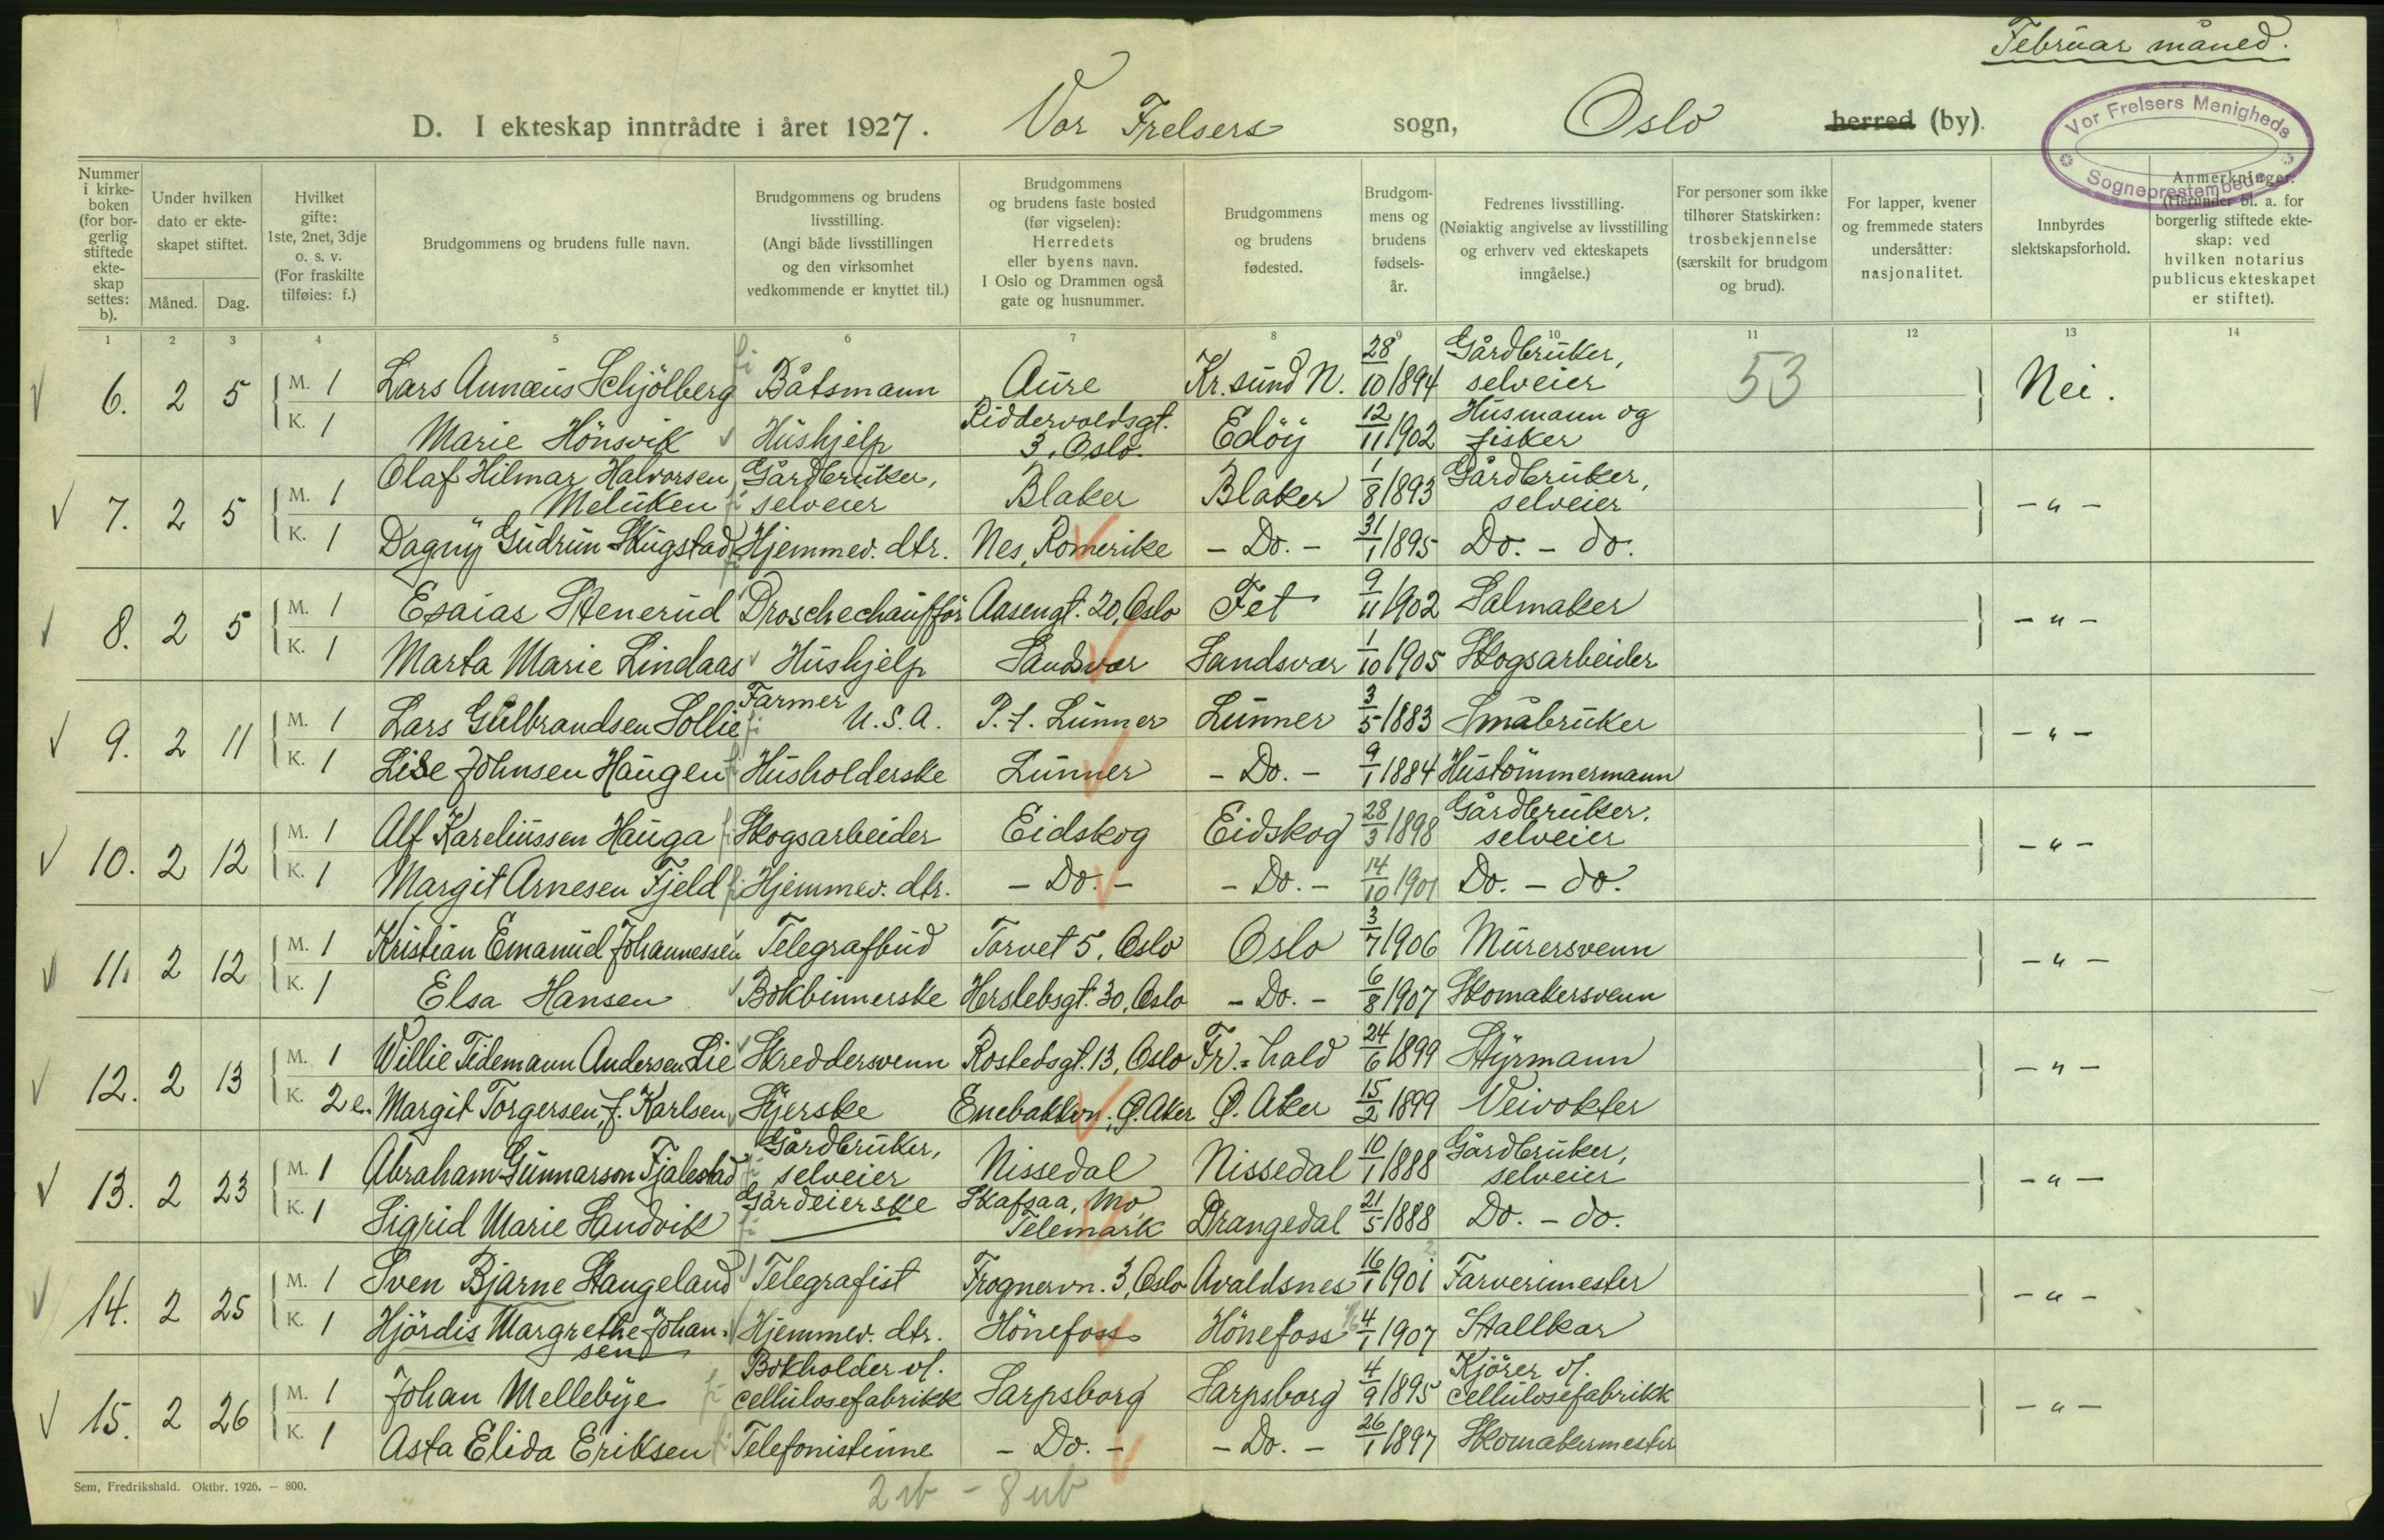 Februar måned.
D. I ekteskap inntrådte i året 1927. Vor Frelsers sogn, Oslo herred (by).
Vor Frelsers Menigheds
Sogneprestembede
Nummer i kirkeboken (for borgerlig stiftede ekteskap settes: b).
Under hvilken dato er ekteskapet stiftet.
Måned. Dag.
Hvilket gifte: 1ste, 2net, 3dje o. s. v. (For fraskilte tilføies: f.)
Brudgommens og brudens fulle navn.
Brudgommens og brudens livsstilling. (Angi både livsstillingen og den virksomhet vedkommende er knyttet til.)
Brudgommens og brudens faste bosted (før vigselen): Herredets eller byens navn. I Oslo og Drammen også gate og husnummer.
Brudgommens og brudens fødested.
Brudgommens og brudens fødselsår.
Fedrenes livsstilling. (Nøiaktig angivelse av livsstilling og erhverv ved ekteskapets inngåelse.)
For personer som ikke tilhører Statskirken: trosbekjennelse (særskilt for brudgom og brud).
For lapper, kvener og fremmede staters undersåtter: nasjonalitet.
Innbyrdes slektskapsforhold.
Anmerkninger. (Herunder bl. a. for borgerlig stiftede ekteskap: ved hvilken notarius publicus ekteskapet er stiftet).
1 2 3 4 5 6 7 8 9 10 11 12 13 14
6. 2 5 M. 1 Lars Annæus Schjölberg Båtsmann Aure Kr.sund N. 28/10 1894 Gårdbruker, selveier 53 Nei.
K. 1 Marie Hönsvik Hushjelp Riddervoldsgt. 3, Oslo. Edöy 12/11 1902 Husmann og fisker
7. 2 5 M. 1 Olaf Hilmar Halvorsen Meluken Gårdbruker, selveier Blaker Blaker 1/8 1893 Gårdbruker, selveier - " -
K. 1 Dagny Gudrun Skugstad Hjemmev. dtr. Nes, Romerike - Do. - 31/1 1895 Do. - do.
8. 2 5 M. 1 Esaias Stenerud Droschechaufför Aasengt. 20, Oslo Fet 9/11 1902 Salmaker - " -
K. 1 Marta Marie Lindaas Hushjelp Sandsvær Sandsvær 1/10 1905 Skogsarbeider
9. 2 11 M. 1 Lars Gulbrandsen Sollie Farmer U.S.A. P.t. Lunner Lunner 3/5 1883 Småbruker - " -
K. 1 Lise Johnsen Haugen Husholderske Lunner - Do. - 9/1 1884 Hustömmermann
10. 2 12 M. 1 Alf Kareliussen Hauga Skogsarbeider Eidskog Eidskog 28/3 1898 Gårdbruker, selveier - " -
K. 1 Margit Arnesen Fjeld Hjemmev. dtr. - Do. - - Do. - 14/10 1901 Do. - do.
11. 2 12 M. 1 Kristian Emanuel Johannessen Telegrafbud Torvet 5, Oslo Oslo 3/7 1906 Murersvenn - " -
K. 1 Elsa Hansen Bokbinnerske Herslebsgt. 30, Oslo - Do. - 6/8 1907 Skomakersvenn
12. 2 13 M. 1 Willie Tidemann Andersen Lie Skreddersvenn Rostedsgt. 13, Oslo Fr.=hald 24/6 1899 Styrmann - " -
K. 2 e. Margit Torgersen, f. Karlsen Syerske Enebakkvn., Ø. Aker Ø. Aker 15/2 1899 Veivokter
13. 2 23 M. 1 Abraham Gunnarson Fjalestad Gårdbruker, selveier Nissedal Nissedal 10/1 1888 Gårdbruker, selveier - " -
K. 1 Sigrid Marie Sandvik Gårdeierske Skafsaa, Mo, Telemark Drangedal 21/5 1888 Do. - do.
14. 2 25 M. 1 Sven Bjarne Stangeland Telegrafist Frognervn. 3, Oslo Avaldsnes 16/1 1901 Farverimester - " -
K. 1 Hjördis Margrethe Johansen Hjemmev. dtr. Hönefoss Hönefoss 4/1 1907 Stallkar
15. 2 26 M. 1 Johan Mellebye Bokholder v/. cellulosefabrikk Sarpsborg Sarpsborg 4/9 1895 Kjörer v/. cellulosefabrikk - " -
K. 1 Asta Elida Eriksen Telefonistinne - Do. - - Do. - 26/1 1897 Skomakermester
Sem, Fredrikshald. Oktbr. 1926. — 800.
2 ub - 8 ub